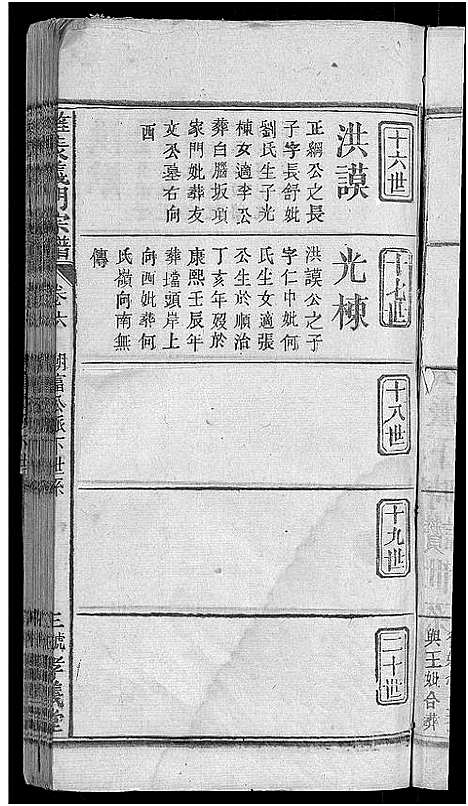 十六世
洪謨
正綱公之長
子字長舒妣
劉氏生子光
棟女適李公
葬白腦坂項
家門妣葬友
文公墓右向
酉
十七世
光棟
洪謨公之子
字仁中妣何
氏生女適張
公生於順治
丁亥年歿於
康熙壬辰年
葬壋頭岸上
向西妣葬何
氏嶺向南無
傳
十八世
十九世
二十世
宗譜
卷六
公派下世系
三號
與王妣合葬